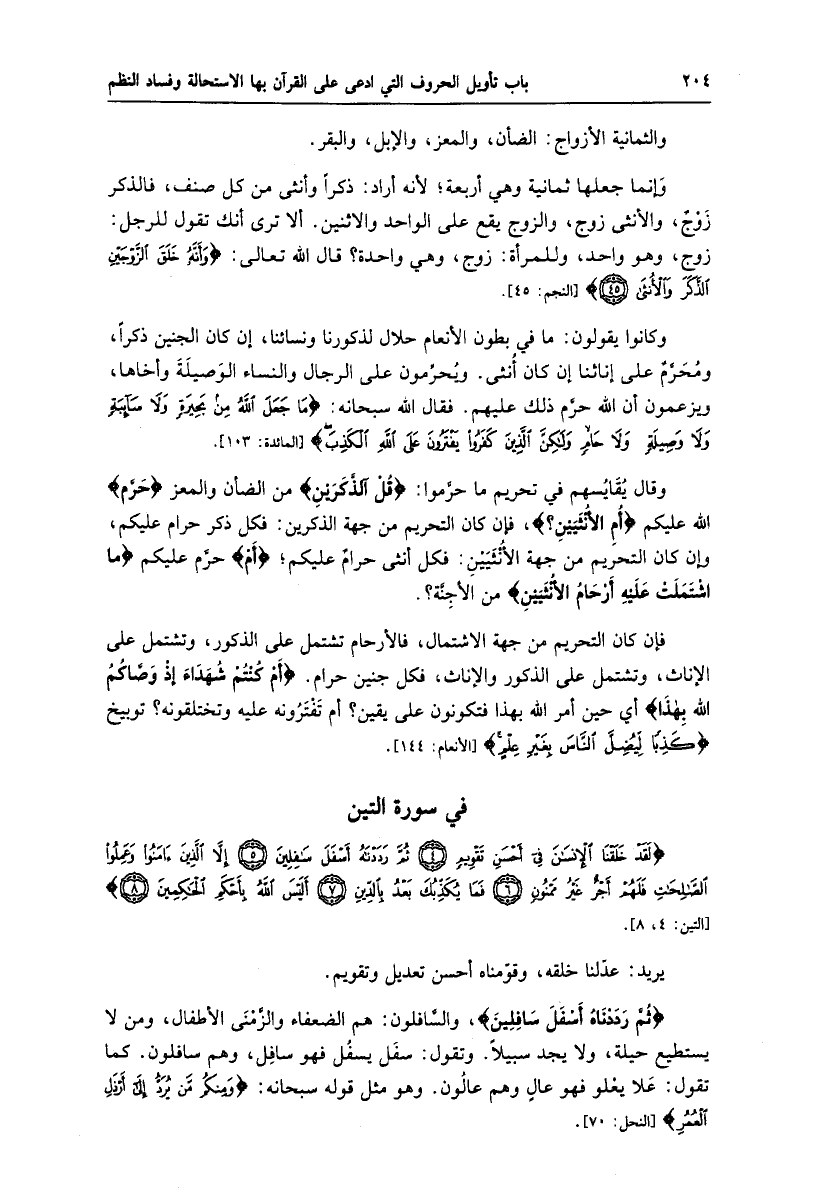 ٢٠٤ باب تأويل الحروف التي ادعى على القرآن بها الاستحالة وفساد النظم
والثمانية الأزواج: الضأن، والمعز، والإبل، والبقر.
وَإنما جعلها ثمانية وهي أربعة؛ لأنه أراد: ذكراً وأنثى من كل صنف، فالذكر
زَوْجٌ، والأنثى زوج، والزوج يقع على الواحد والاثنين. ألا ترى أنك تقول للرجل:
زوج، وهو واحد، وللمرأة: زوج، وهي واحدة؟ قال الله تعالى: ﴿وَأَنَّهُ خَلَقَ ٱلزَّوْجَيْنِ
ٱلذَّكَرَ وَٱلْأُنثَىٰ ٤٥﴾ [النجم: ٤٥].
وكانوا يقولون: ما في بطون الأنعام حلال لذكورنا ونسائنا، إن كان الجنين ذكراً،
ومُحَرَّمٌ على إناثنا إن كان أُنثى. ويُحرِّمون على الرجال والنساء الوَصيلَةَ وأخاها،
ويزعمون أن الله حرَّم ذلك عليهم. فقال الله سبحانه: ﴿مَا جَعَلَ ٱللَّهُ مِنۢ بَحِيرَةٍ وَلَا سَآئِبَةٍ
وَلَا وَصِيلَةٍ وَلَا حَامٍ وَلَٰكِنَّ ٱلَّذِينَ كَفَرُوا۟ يَفْتَرُونَ عَلَى ٱللَّهِ ٱلْكَذِبَ﴾ [المائدة: ١٠٣].
وقال يُقَايُسهم في تحريم ما حرَّموا: ﴿قُلْ آلذَّكَرَيْنِ﴾ من الضأن والمعز ﴿حَرَّم﴾
الله عليكم ﴿أَمِ الأُنْثَيَيْنِ؟﴾، فإن كان التحريم من جهة الذكرين: فكل ذكر حرام عليكم،
وإن كان التحريم من جهة الأُنْثَيَيْنِ: فكل أنثى حرامٌ عليكم؛ ﴿أَمْ﴾ حرَّم عليكم ﴿ما
اشْتَمَلَتْ عَلَيْهِ أَرْحَامُ الأُنْثَيَيْنِ﴾ من الأجِنَّة؟.
فإن كان التحريم من جهة الاشتمال، فالأرحام تشتمل على الذكور، وتشتمل على
الإناث، وتشتمل على الذكور والإناث، فكل جنين حرام. ﴿أَمْ كُنْتُمْ شُهَدَاءَ إِذْ وَصَّاكُمُ
الله بِهٰذَا﴾ أي حين أمر الله بهذا فتكونون على يقين؟ أم تَفْتَرُونه عليه وتختلقونه؟ توبيخ
﴿كَذِبًا لِيُضِلَّ ٱلنَّاسَ بِغَيْرِ عِلْمٍ﴾ [الأنعام: ١٤٤].
في سورة التين
﴿لَقَدْ خَلَقْنَا ٱلْإِنسَٰنَ فِىٓ أَحْسَنِ تَقْوِيمٍ ٤ ثُمَّ رَدَدْنَٰهُ أَسْفَلَ سَٰفِلِينَ ٥ إِلَّا ٱلَّذِينَ ءَامَنُوا۟ وَعَمِلُوا۟
ٱلصَّٰلِحَٰتِ فَلَهُمْ أَجْرٌ غَيْرُ مَمْنُونٍ ٦ فَمَا يُكَذِّبُكَ بَعْدُ بِٱلدِّينِ ٧ أَلَيْسَ ٱللَّهُ بِأَحْكَمِ ٱلْحَٰكِمِينَ ٨﴾
[التين: ٤، ٨].
يريد: عدّلنا خلقه، وقوّمناه أحسن تعديل وتقويم.
﴿ثُمَّ رَدَدْنَاهُ أَسْفَلَ سَافِلِينَ﴾، والسَّافلون: هم الضعفاء والزَّمْنَى الأطفال، ومن لا
يستطيع حيلة، ولا يجد سبيلاً. وتقول: سفَل يسفُل فهو سافِل، وهم سافلون. كما
تقول: عَلا يعْلو فهو عالٍ وهم عالُون. وهو مثل قوله سبحانه: ﴿وَمِنكُم مَّن يُرَدُّ إِلَىٰٓ أَرْذَلِ
ٱلْعُمُرِ﴾ [النحل: ٧٠].